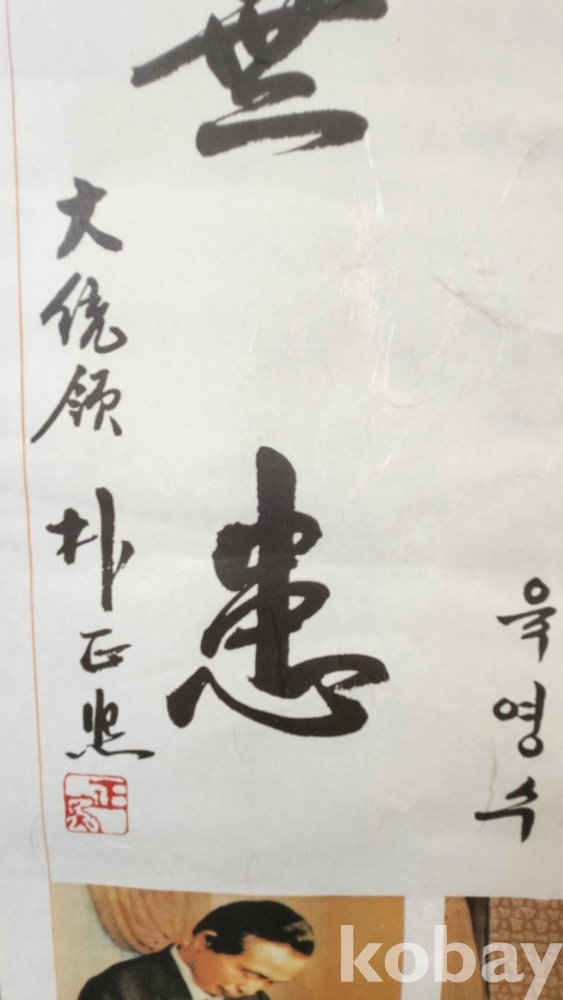 無
患
大統領
朴正熙
正熙
육영수
kobay